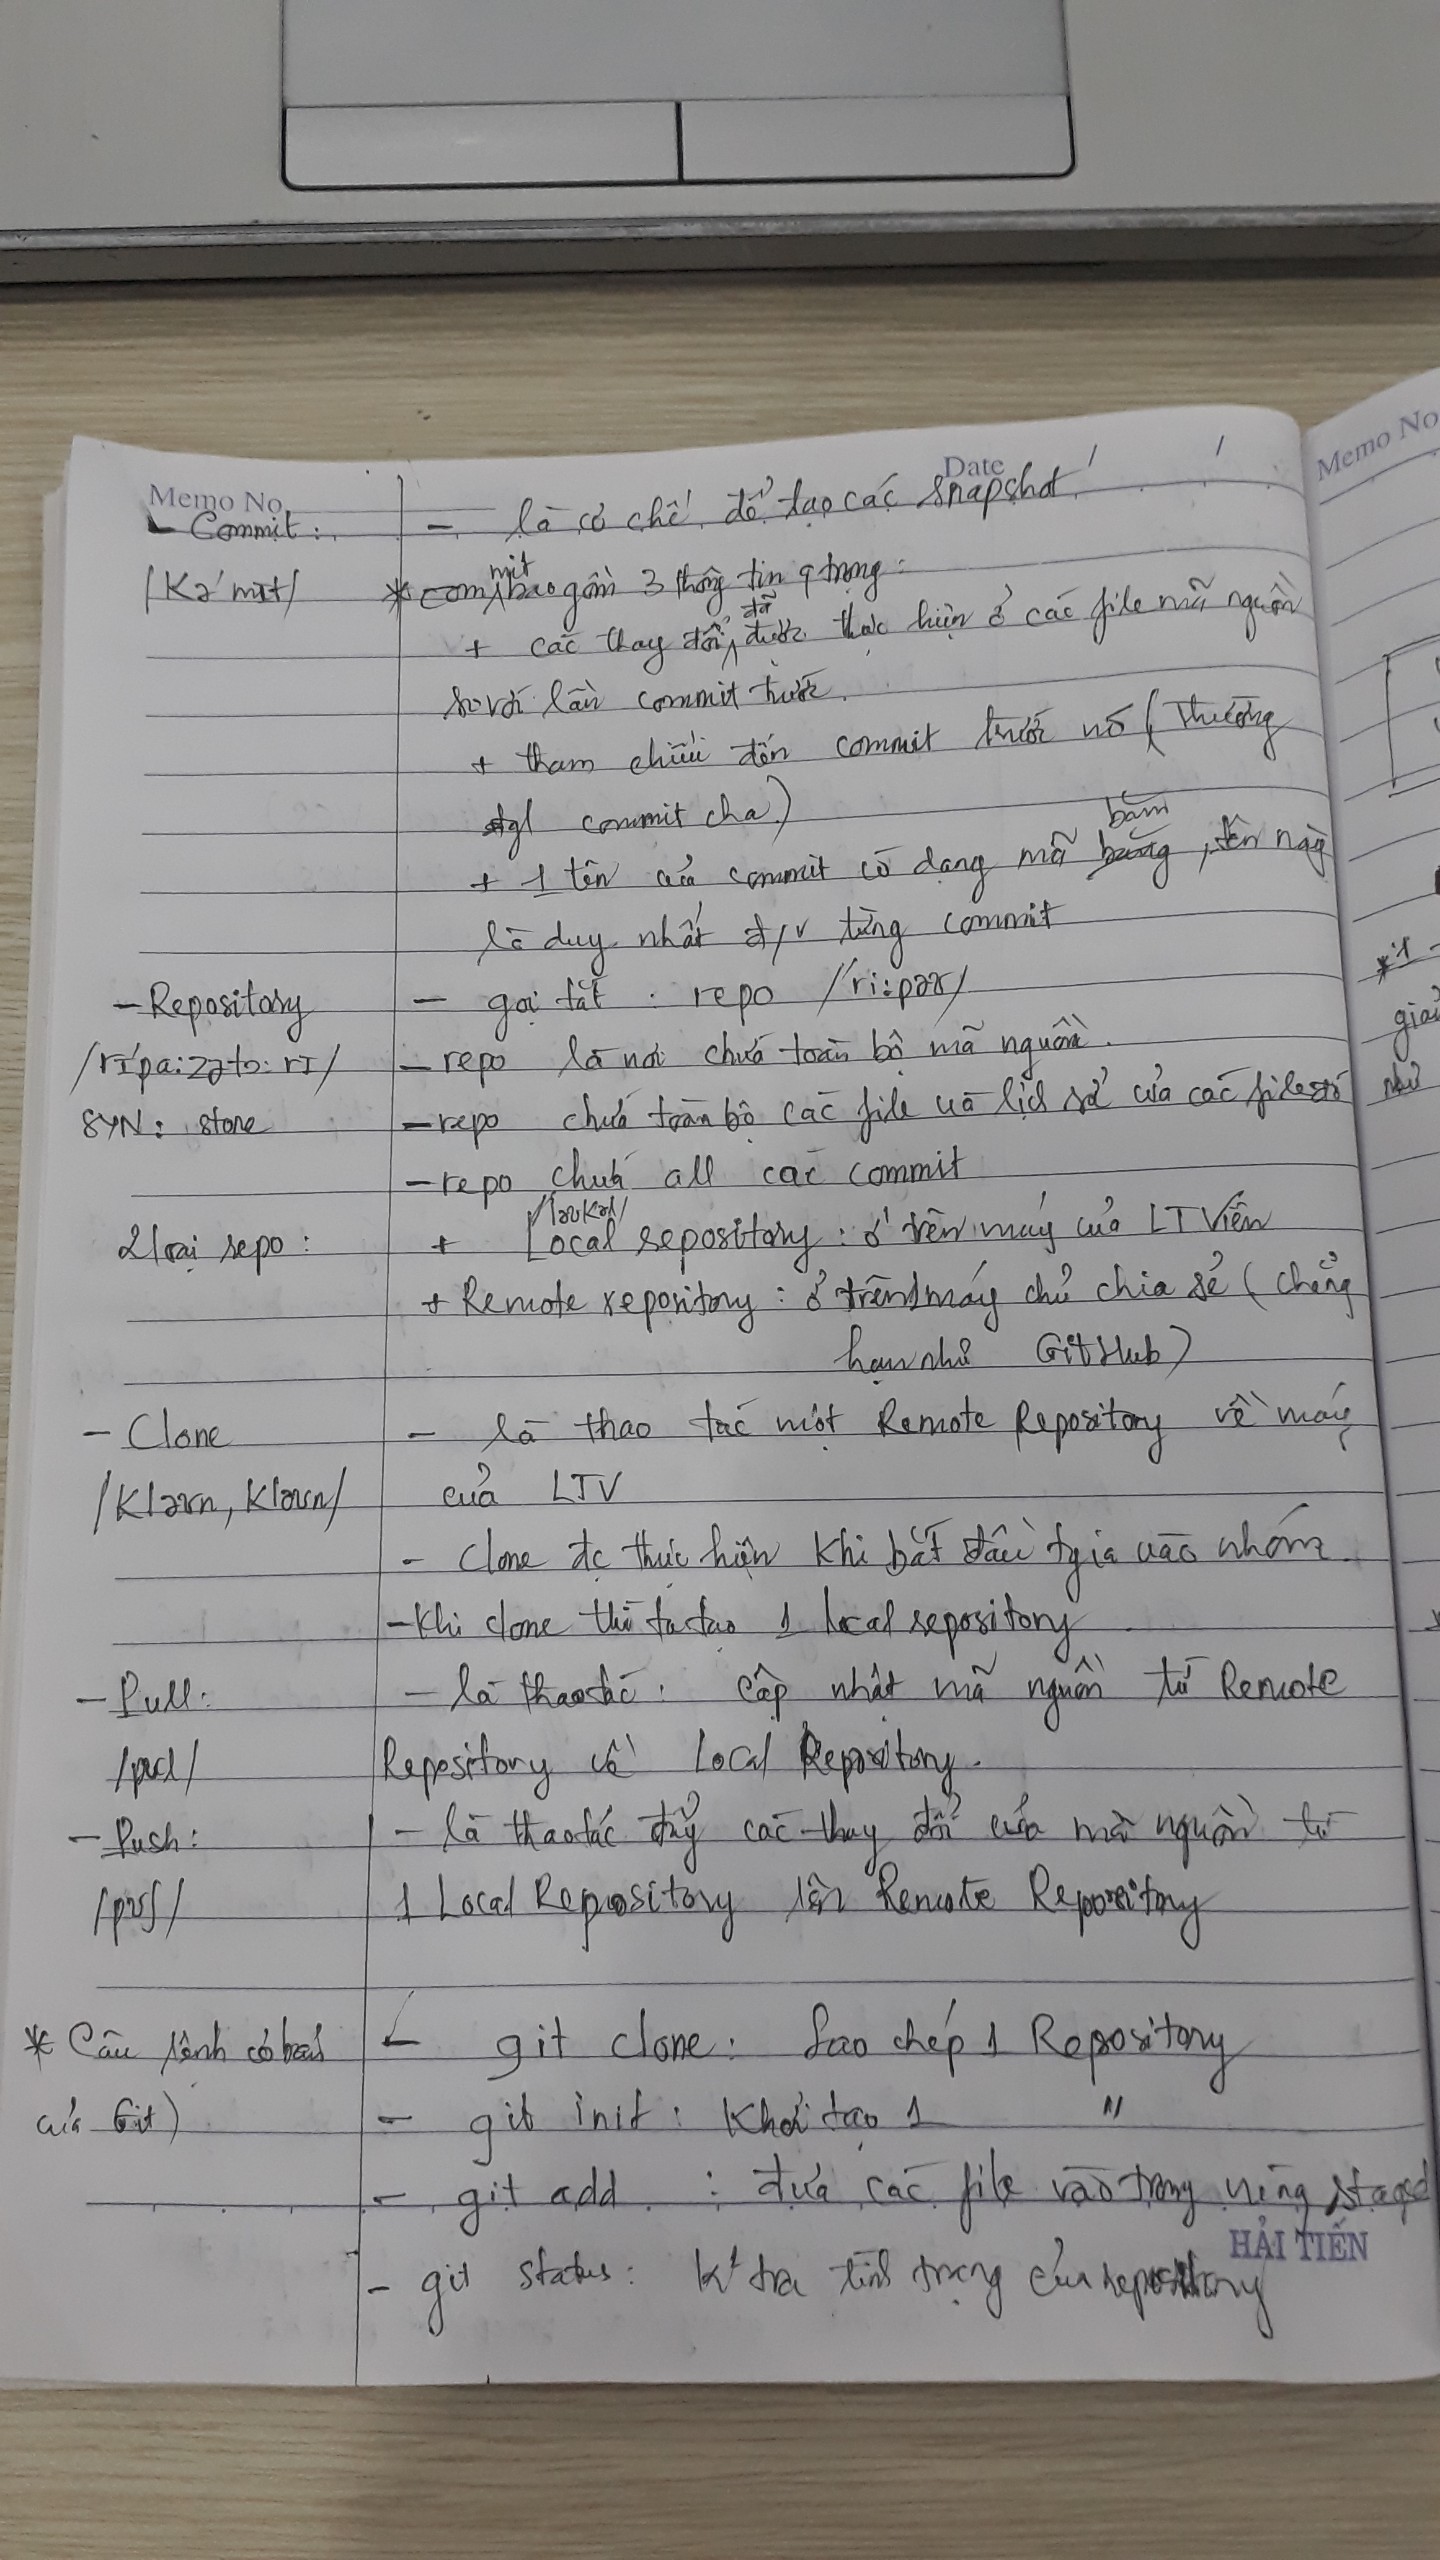 Memo No. Date / /
- Commit: - là cơ chế để tạo các snapshot
/Kə'mɪt/ * commit bao gồm 3 thông tin q trọng:
+ các thay đổi đã được thực hiện ở các file mã nguồn
so với lần commit trước.
+ tham chiếu đến commit trước nó (Thường
gl commit cha)
+ 1 tên của commit có dạng mã băm, tên này
là duy nhất đ/v từng commit
- Repository - gọi tắt: repo /'ri:pəʊ/
/rɪ'pa:zətɔ:rɪ/ - repo là nơi chứa toàn bộ mã nguồn.
SYN: store - repo chứa toàn bộ các file và lịch sử của các file đó
- repo chứa all các commit
2 loại repo: + Local /ləʊkəl/ repository: ở trên máy của LT Viên
+ Remote repository: ở trên 1 máy chủ chia sẻ (chẳng
hạn như GitHub)
- Clone - là thao tác một Remote Repository về máy
/Kləʊn, Kloʊn/ của LTV
- Clone đc thực hiện khi bắt đầu tgia vào nhóm.
- Khi clone thì ta tạo 1 local repository
- Pull: - là thao tác: cập nhật mã nguồn từ Remote
/pʊl/ Repository về Local Repository.
- Push: - là thao tác đẩy các thay đổi của mã nguồn từ
/pʊʃ/ 1 Local Repository lên Remote Repository
* Câu lệnh cơ bản - git clone: Sao chép 1 Repository
của Git) - git init: Khởi tạo 1 "
- git add: đưa các file vào trong vùng staged
- git status: k' tra tình trạng của repository
HẢI TIẾN
Memo No
giai
như